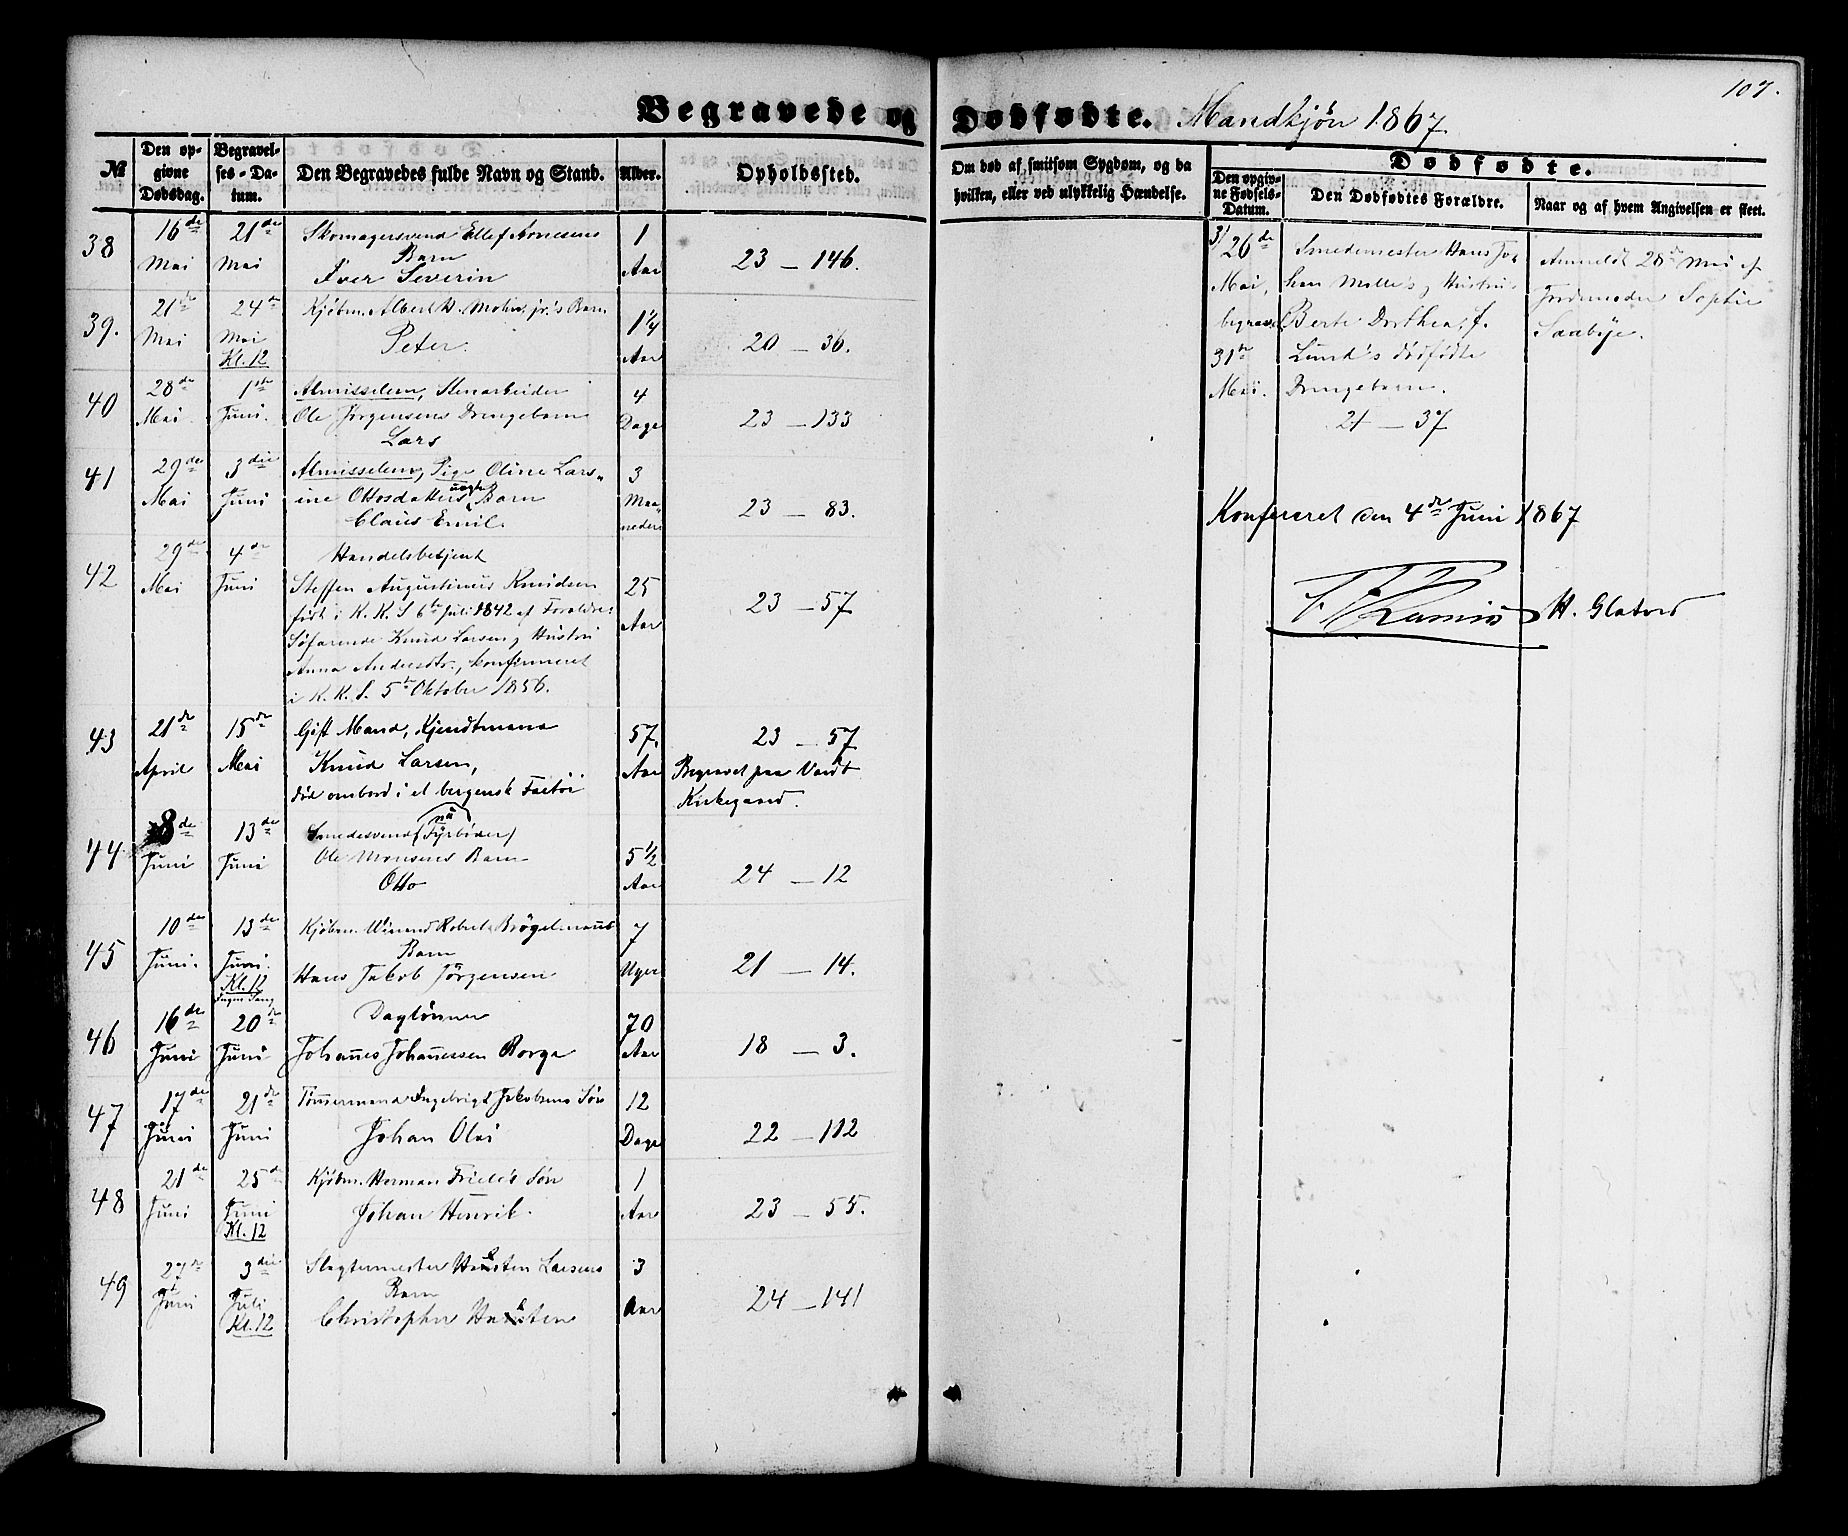 107.
Begravede og Dødfødte. Mandkjøn 1867
№
Den opgivne Dødsdag.
Begravelses-Datum.
Den Begravedes fulde Navn og Stand.
Alder.
Opholdssted.
Om død af smitsom Sygdom, og da hvilken, eller ved ulykkelig Hændelse.
Dødfødte.
Den opgivne Fødsels-Datum.
Den Dødfødtes Forældre.
Naar og af hvem Angivelsen er skeet.
38
16de Mai
21de Mai
Skomagersvend Ellef Arnesens
Barn
Iver Severin
1 Aar
23 – 146.
39.
21de Mai
24de Mai Kl. 12
Kjøbm. Albert H. jr.'s Barn
Peter.
1¼ Aar
20 – 36.
40
28de Mai.
1ste Juni.
Almisselem, Stenarbeider
Ole Jørgensens Drengebarn
Lars
4 Dage
23 – 133
41
29de Mai
3die Juni
Almisselem, Pige Oline Lars-
ine Ottosdatters uægte Barn
Claus Emil.
3 Maaneder
23 – 83.
42
29de Mai
4de Juni
Handelsbetjent
Steffen Augustinus Knudsen
født i K. K. S. 6te Juli 1842 af Forældre:
Søfarende Knud Larsen og Hustru
Anna Andersdtr., konfirmeret
i K. K. S. 5te Oktober 1856.
25 Aar
23 – 57
43
21de April
15de Mai
Gift Mand, Kjendtmand
Knud Larsen,
død ombord i et bergensk Fartøi
57. Aar
23 – 57
Begravet paa
Kirkegaard.
44
8de Juni
13de Juni
Smedesvend (nu Fyrbøder)
Ole Monsens Barn
Otto
5½ Aar
24 – 12
45
10de Juni.
13de Juni. Kl. 12
Ingen Sang
Kjøbm. Winand Robert Brögelmanns
Barn
Hans Jakob Jörgensen
7 Uger
21 – 14.
46
16de Juni
20de Juni
Daglønner
Johannes Johannessen Rorge
70 Aar
18 – 3.
47
17de Juni
21de Juni
Tømmermand Ingebrigt Jakobsens Søn
Johan Olai
12 Dage
22 – 112
48
21de Juni
25de Juni Kl. 12
Kjøbm. Herman Friele's Søn
Johan Henrik.
1 Aar
23 – 55.
49
27de Juni
3die Juli Kl. 12
Slagtermester Larsens
Barn
Christopher
3 Aar
24 – 141
3/ 26de Mai, begravet 31te Mai.
Smedemester Hans Jo-
han Møller's og Hustru
Berte Dorthea, f.
Lund's dødfødte
Drengebarn.
21 – 37
Anmeldt 28de Mai af
Jordemoder Sophie
Saabye.
Konfereret den 4de Juni 1867